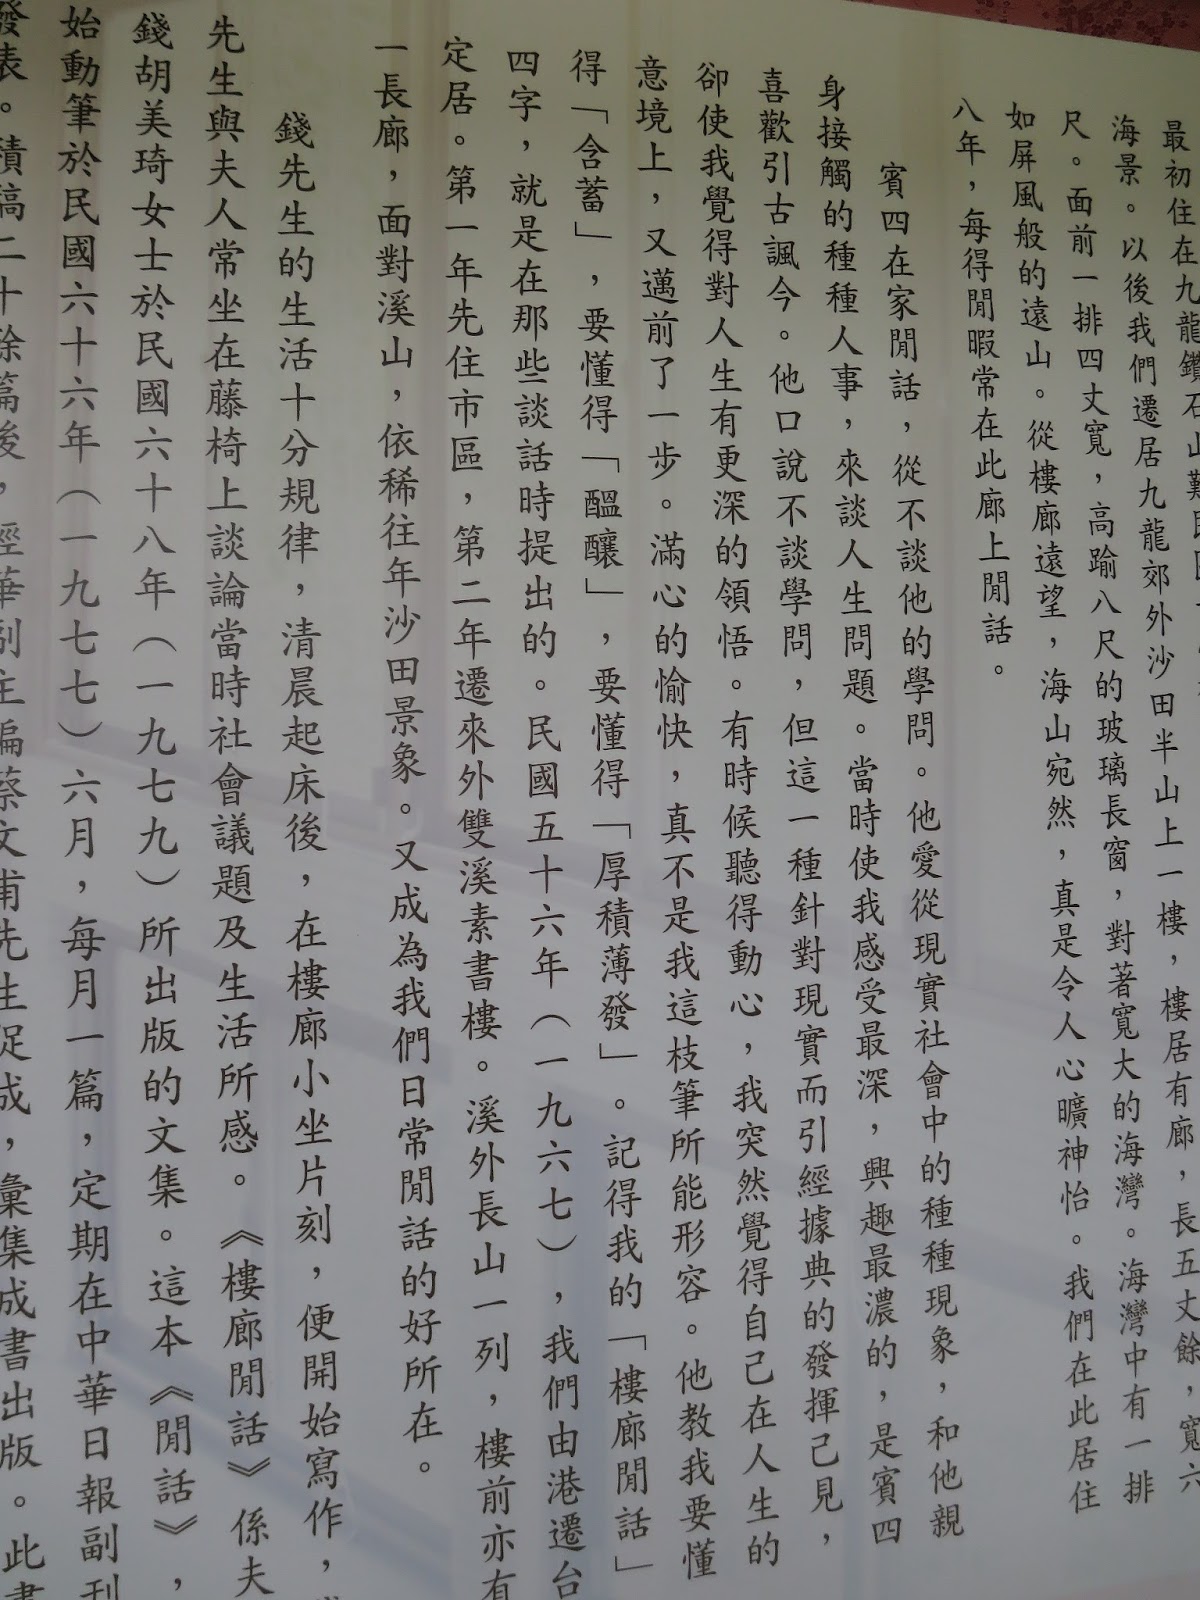 最初住在九龍鑽石山難民
海景。以後我們遷居九龍郊外沙田半山上一樓，樓居有廊，長五丈餘，寬六
尺。面前一排四丈寬，高踰八尺的玻璃長窗，對著寬大的海灣。海灣中有一排
如屏風般的遠山。從樓廊遠望，海山宛然，真是令人心曠神怡。我們在此居住
八年，每得閒暇常在此廊上閒話。
賓四在家閒話，從不談他的學問。他愛從現實社會中的種種現象，和他親
身接觸的種種人事，來談人生問題。當時使我感受最深，興趣最濃的，是賓四
喜歡引古諷今。他口說不談學問，但這一種針對現實而引經據典的發揮己見，
卻使我覺得對人生有更深的領悟。有時候聽得動心，我突然覺得自己在人生的
意境上，又邁前了一步。滿心的愉快，真不是我這枝筆所能形容。他教我要懂
得「含蓄」，要懂得「醞釀」，要懂得「厚積薄發」。記得我的「樓廊閒話」
四字，就是在那些談話時提出的。民國五十六年（一九六七），我們由港遷台
定居。第一年先住市區，第二年遷來外雙溪素書樓。溪外長山一列，樓前亦有
一長廊，面對溪山，依稀往年沙田景象。又成為我們日常閒話的好所在。
錢先生的生活十分規律，清晨起床後，在樓廊小坐片刻，便開始寫作，
先生與夫人常坐在藤椅上談論當時社會議題及生活所感。《樓廊閒話》係夫
錢胡美琦女士於民國六十八年（一九七九）所出版的文集。這本《閒話》，
始動筆於民國六十六年（一九七七）六月，每月一篇，定期在中華日報副刊
發表。積稿二十餘篇後，經華副主編蔡文甫先生促成，彙集成書出版。此書